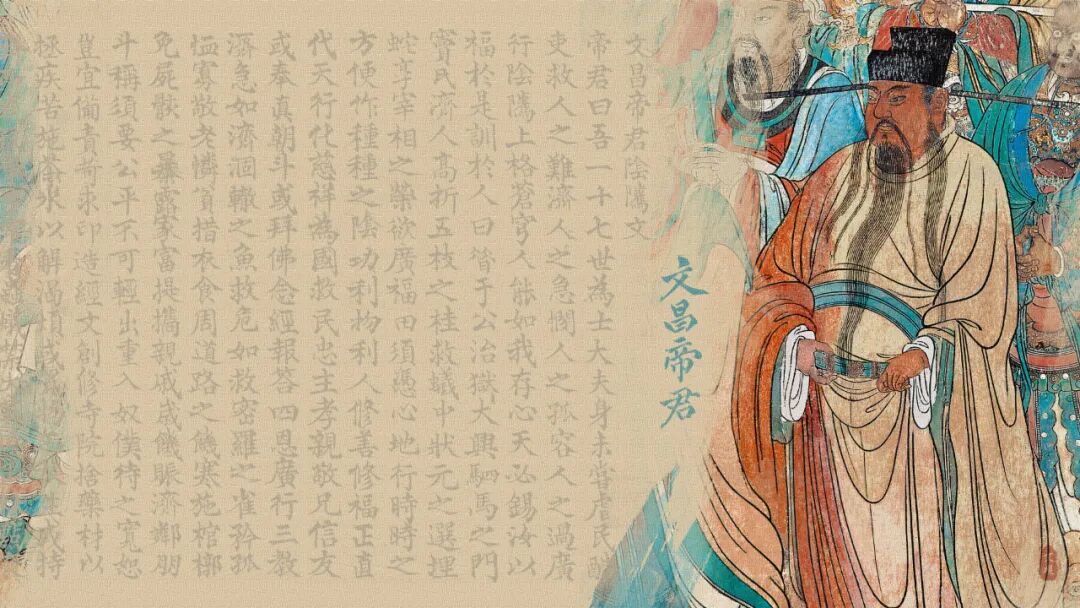 文昌帝君
文昌帝君陰騭文
帝君曰吾一十七世為士大夫身未嘗虐民酷
吏救人之難濟人之急憫人之孤容人之過廣
行陰騭上格蒼穹人能如我存心天必錫汝以
福於是訓於人曰昔于公治獄大興駟馬之門
竇氏濟人高折五枝之桂救蟻中狀元之選埋
蛇享宰相之榮欲廣福田須憑心地行時時之
方便作種種之陰功利物利人修善修福正直
代天行化慈祥為國救民忠主孝親敬兄信友
或奉真朝斗或拜佛念經報答四恩廣行三教
濟急如濟涸轍之魚救危如救密羅之雀矜孤
恤寡敬老憐貧措衣食周道路之饑寒施棺槨
免屍骸之暴露家富提攜親戚歲饑賑濟鄰朋
斗稱須要公平不可輕出重入奴僕待之寬恕
豈宜備責苛求印造經文創修寺院捨藥材以
拯疾苦施茶水以解渴煩或 或持